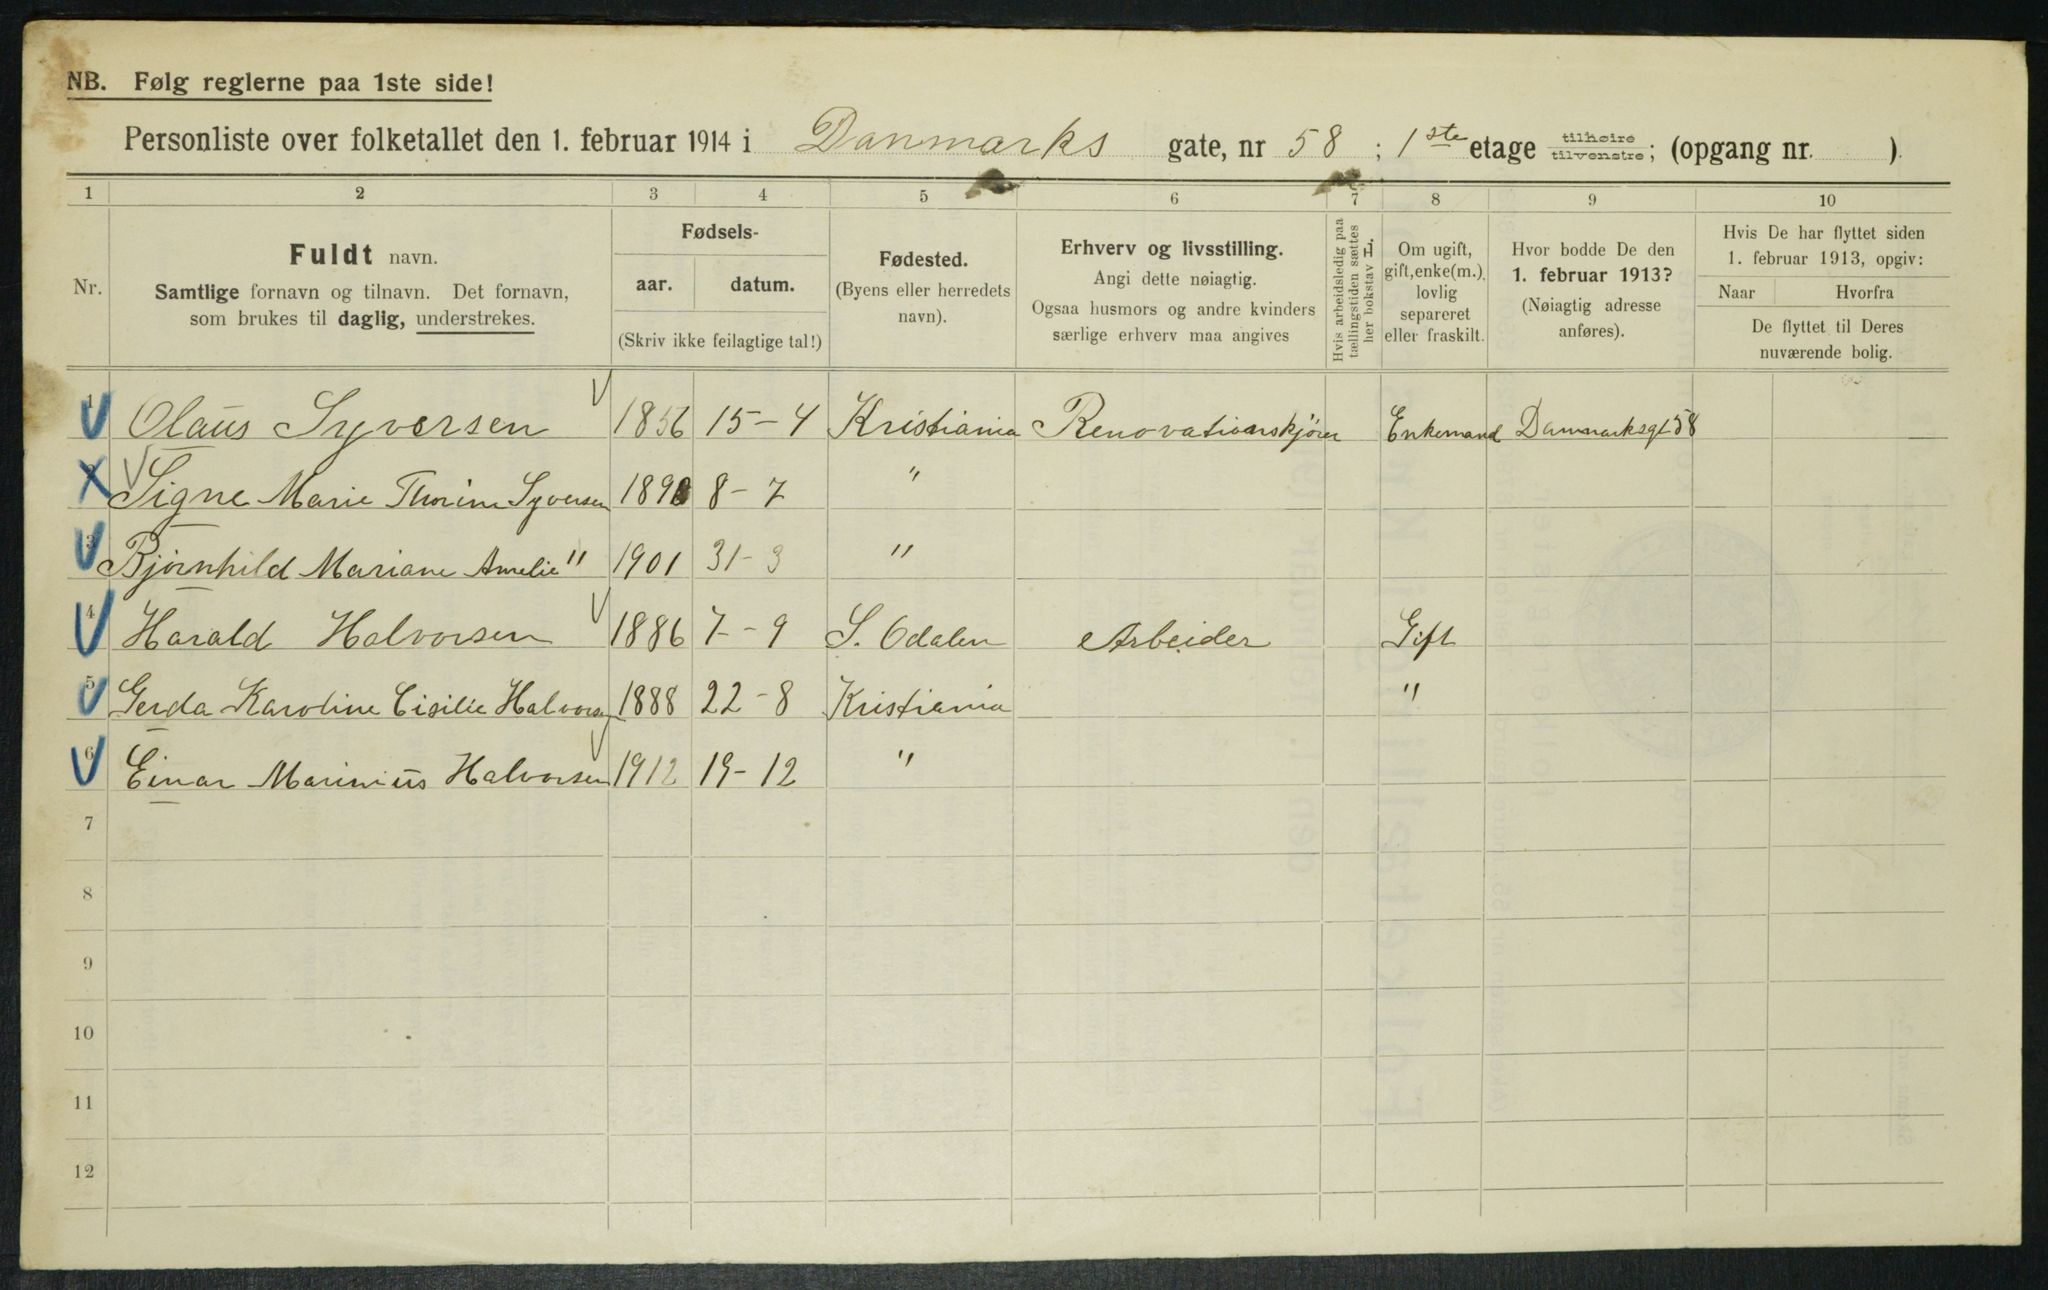 NB. Følg reglerne paa 1ste side!
Personliste over folketallet den 1. februar 1914 i Danmarks gate, nr 58 ; 1ste etage tilhøire tilvenstre; (opgang nr. )
1 2 3 4 5 6 7 8 9 10
Nr.
Fuldt navn.
Samtlige fornavn og tilnavn. Det fornavn,
som brukes til daglig, understrekes.
Fødsels-
aar. datum.
(Skriv ikke feilagtige tal!)
Fødested.
(Byens eller herredets
navn).
Erhverv og livsstilling.
Angi dette nøiagtig.
Ogsaa husmors og andre kvinders
særlige erhverv maa angives
Hvis arbeidsledig paa
tællingstiden sættes
her bokstav L.
Om ugift,
gift, enke(m.),
lovlig
separeret
eller fraskilt.
Hvor bodde De den
1. februar 1913?
(Nøiagtig adresse
anføres).
Hvis De har flyttet siden
1. februar 1913, opgiv:
Naar Hvorfra
De flyttet til Deres
nuværende bolig.
1 Olaus Syversen 1856 15-4 Kristiania Renovationskjører Enkemand Danmarksgt 58
2 Signe Marie Thorine Syversen 8-7 "
3 Bjørnhild Mariane Amelie " 1901 31-3 "
4 Harald Halvorsen 1886 7-9 S. Odalen Arbeider Gift
5 Gerda Karoline Cisilie Halvorsen 1888 22-8 Kristiania "
6 Einar Marinius Halvorsen 1912 19-12 "
7
8
9
10
11
12